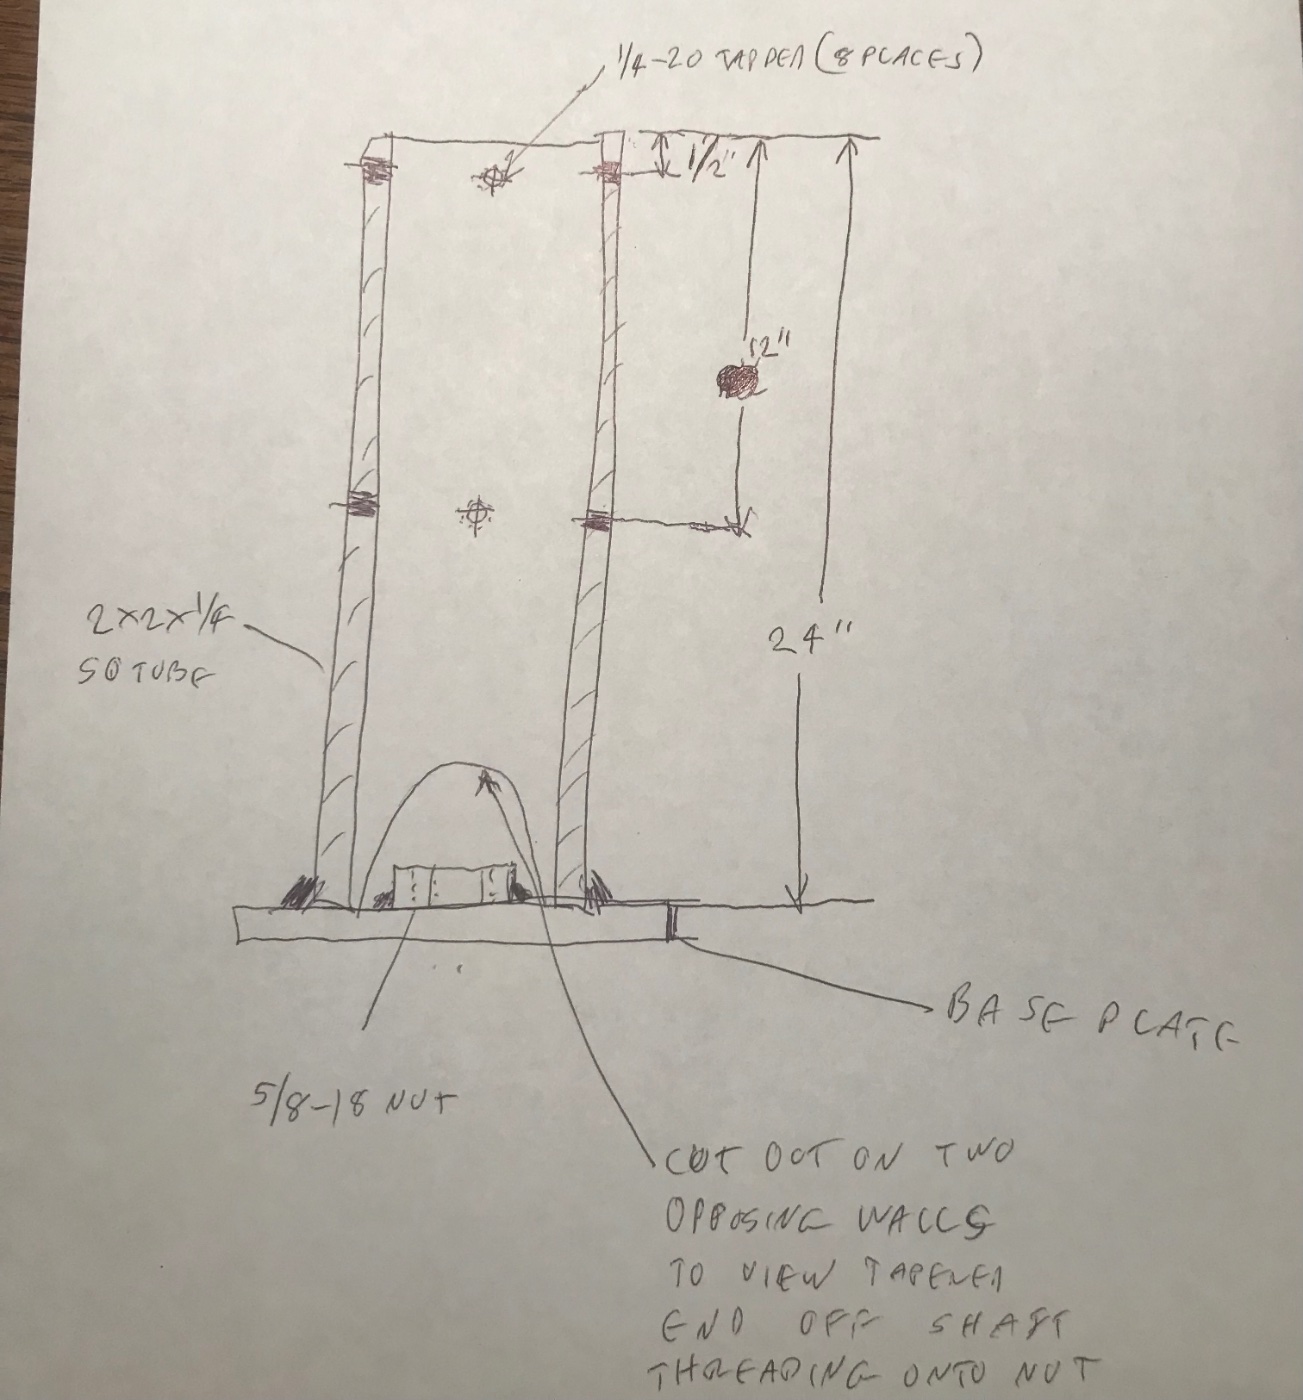 1/4-20 TAPPED (8 PLACES)
1/2"
12"
2x2x1/4
SQ TUBE
24"
BASE PLATE
5/8-18 NUT
CUT OUT ON TWO
OPPOSING WALLS
TO VIEW TAPERED
END OFF SHAFT
THREADING ONTO NUT